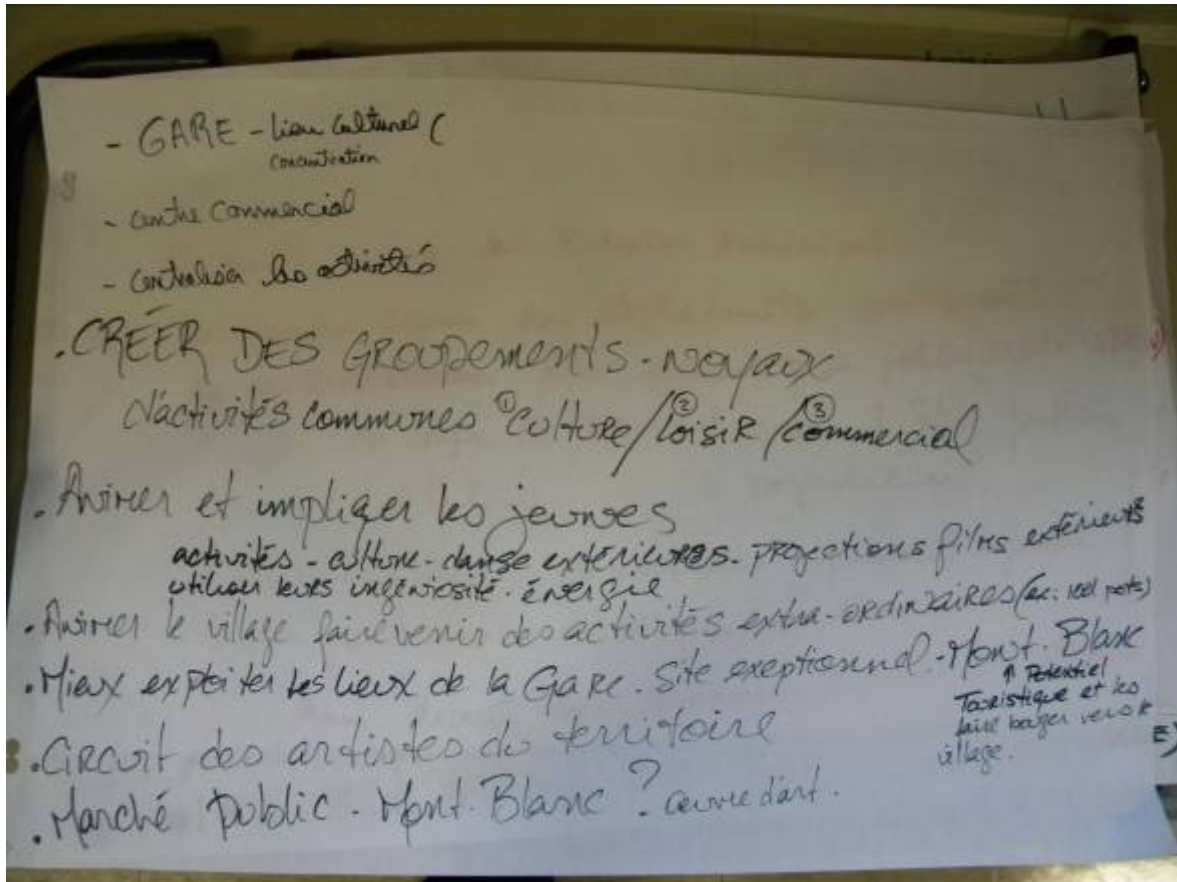 - GARE - lieu culturel (
concentration
- centre commercial
- centraliser les activités
. CRÉER DES GROUPEMENTS - NOYAUX
d'activités communes ① culture / ② Loisir / ③ commercial
. Animer et impliquer les jeunes
activités - culture - danse extérieures - projections films extérieurs
utiliser leurs ingéniosité - énergie
. Animer le village faire venir des activités extra-ordinaires (ex: pots)
. Mieux exploiter les lieux de la Gare. Site exeptionnel - Mont-Blanc
↑ Potentiel
Touristique et les
faire bouger vers le
village.
. Circuit des artistes du territoire
. Marché Public - Mont-Blanc ? œuvre d'art.